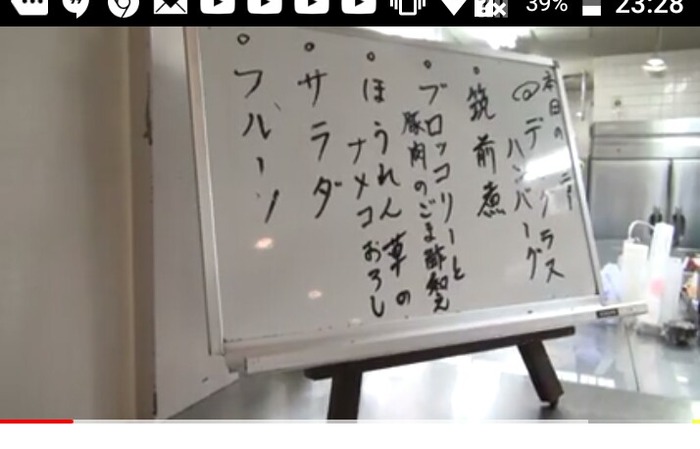 39% 23:28
本日の
デ グラス
ハンバーグ
筑前煮
ブロッコリーと
豚肉のごま酢和え
ほうれん草の
ナメコおろし
サラダ
フルーツ